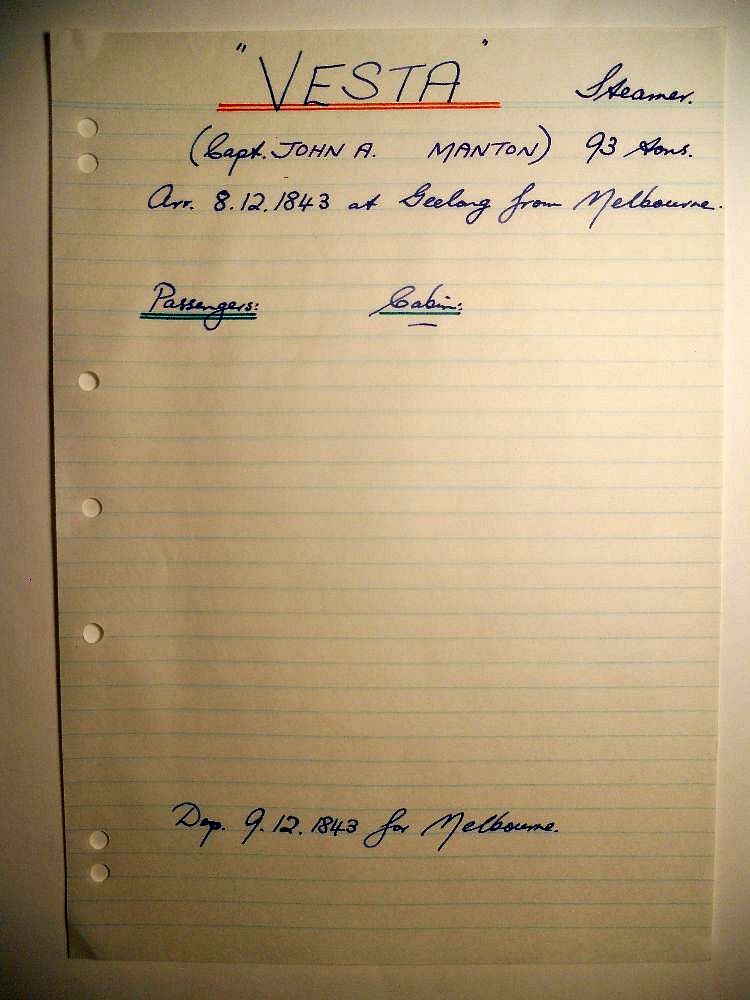 "VESTA" Steamer.
(Capt. JOHN A. MANTON) 93 tons.
Arr. 8.12.1843 at Geelong from Melbourne.
Passengers: Cabin:
Dep. 9.12.1843 for Melbourne.